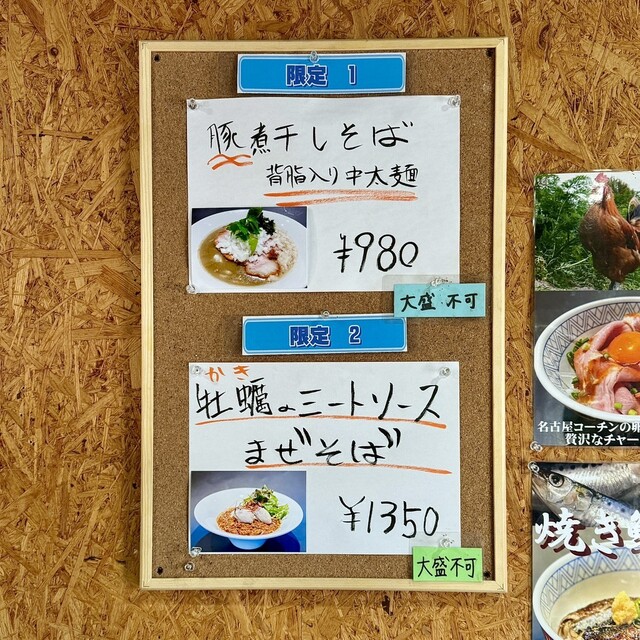 限定 1
豚煮干しそば
背脂入り中太麺
¥980
大盛 不可
限定 2
かき
牡蠣のミートソース
まぜそば
¥1350
大盛不可
名古屋コーチンの卵
贅沢なチャー
焼き